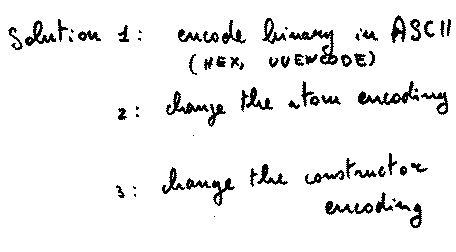 Solution 1: encode binary in ASCII
(HEX, UUENCODE)
2: change the atom encoding
3: change the constructor
encoding